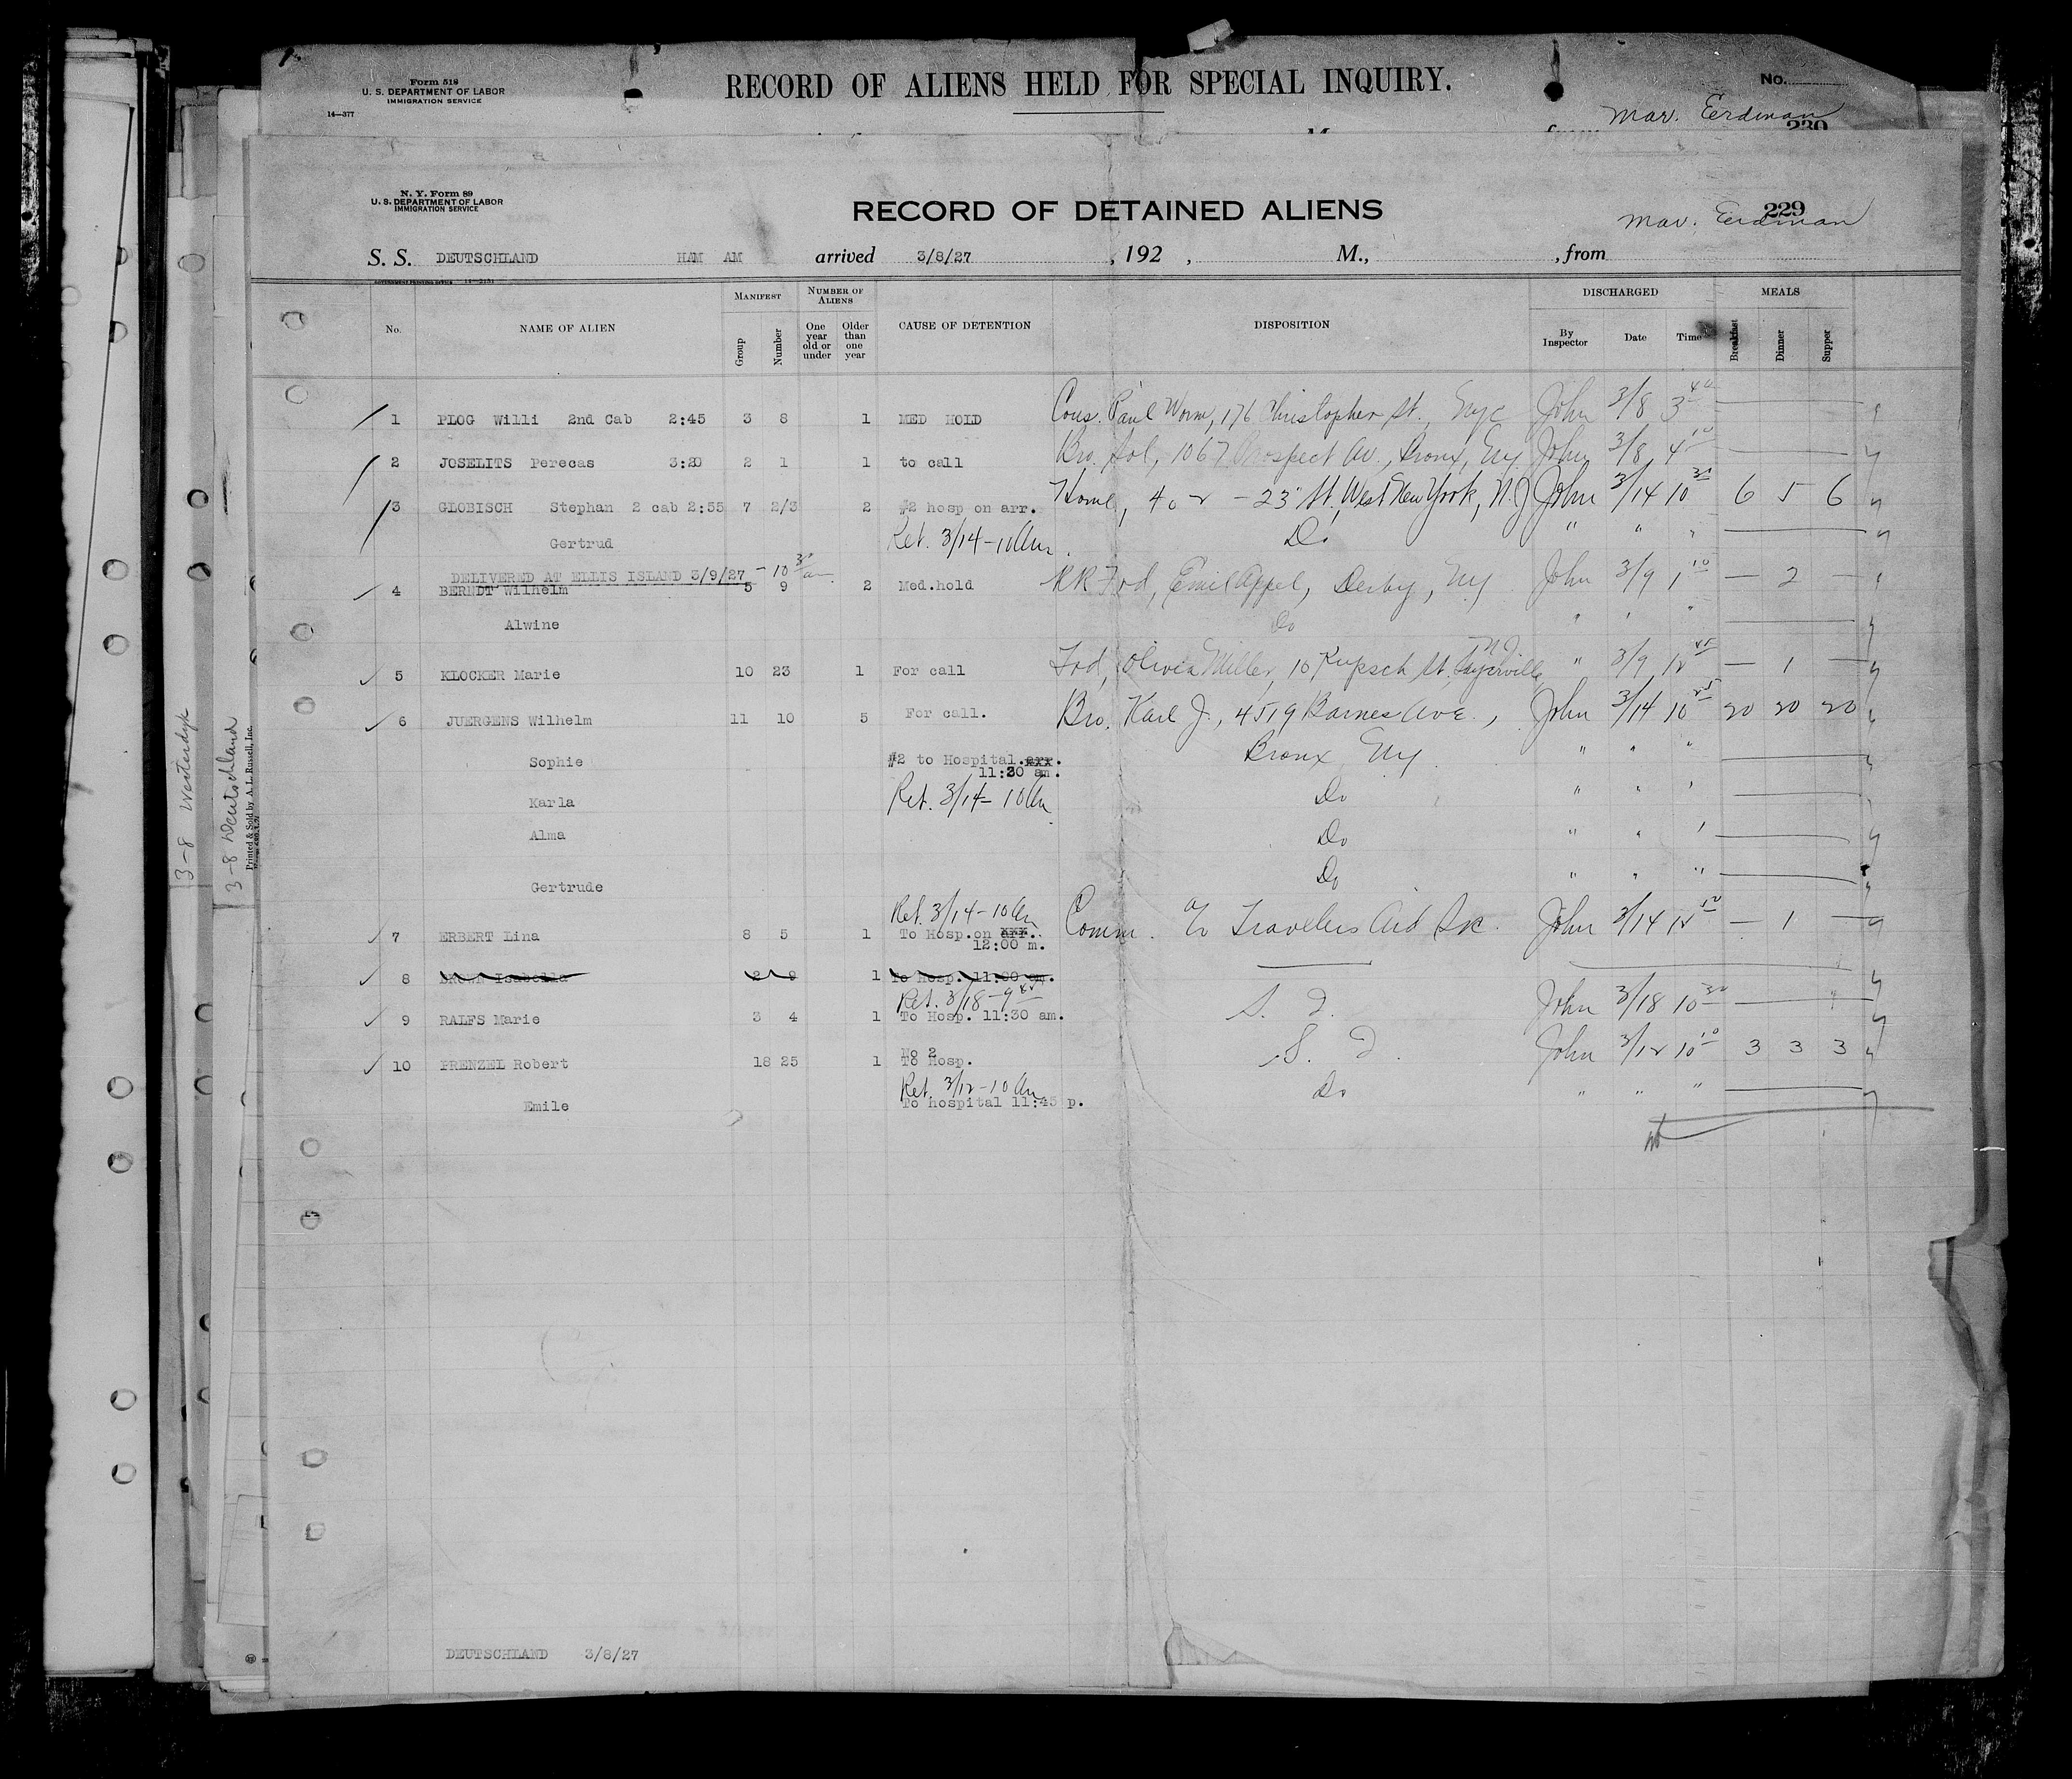 Form 518
U. S. DEPARTMENT OF LABOR
IMMIGRATION SERVICE
14—377
RECORD OF ALIENS HELD FOR SPECIAL INQUIRY.
No.
Mar. Eerdman
230
N. Y. Form 89
U. S. DEPARTMENT OF LABOR
IMMIGRATION SERVICE
RECORD OF DETAINED ALIENS
229
Mar. Eerdman
S. S. DEUTSCHLAND HAM AM arrived 3/8/27, 192 , M., , from
No. NAME OF ALIEN MANIFEST Group Number NUMBER OF ALIENS One year old or under Older than one year CAUSE OF DETENTION DISPOSITION DISCHARGED By Inspector Date Time MEALS Breakfast Dinner Supper
1 PLOG Willi 2nd Cab 2:45 3 8 1 MED HOLD Cous. Paul Worm, 176 Christopher St., Nyc John 3/8 3 40
2 JOSELITS Perecas 3:20 2 1 1 to call Bro. Sol, 1067 Prospect Av., Bronx, Ny John 3/8 4 10
3 GLOBISCH Stephan 2 cab 2:55 7 2/3 2 #2 hosp on arr. Home, 402 - 23" St. West New York, N.J John 3/14 10 30 6 5 6
Gertrud Ret. 3/14-10 Am. Do " " "
DELIVERED AT ELLIS ISLAND 3/9/27 - 10 30 am.
4 BERNDT Wilhelm 5 9 2 Med.hold RR Frd, Emil Appel, Derby, Ny John 3/9 1 10 — 2 —
Alwine Do " " "
5 KLOCKER Marie 10 23 1 For call Frd, Olivia Miller, 10 Kupsch St. Sayerville, NJ " 3/9 12 45 — 1 —
6 JUERGENS Wilhelm 11 10 5 For call. Bro. Karl J., 4519 Barnes Ave., John 3/14 10 25 20 20 20
Sophie #2 to Hospital.arr. Bronx Ny " " "
11:30 am.
Karla Ret. 3/14-10 Am Do " " "
Alma Do " " "
Gertrude Do " " "
Ret. 3/14-10 Am
7 ERBERT Lina 8 5 1 To Hosp.on arr. Comm. To Travelers Aid Sc. John 3/14 12 10 — 1 —
12:00 m.
8 BROWN Isabella 2 9 1 To Hosp. 11:00 am.
Ret. 3/18-9 45
9 RALFS Marie 3 4 1 To Hosp. 11:30 am. S. I. John 3/18 10 30
No 2
10 PRENZEL Robert 18 25 1 To Hosp. S. I. John 3/12 10 10 3 3 3
Ret. 3/12-10 Am
Emile To hospital 11:45 p. Do " " "
DEUTSCHLAND 3/8/27
3-8 Westerdyk
3-8 Deutschland
Printed & Sold by A. L. Russell, Inc.